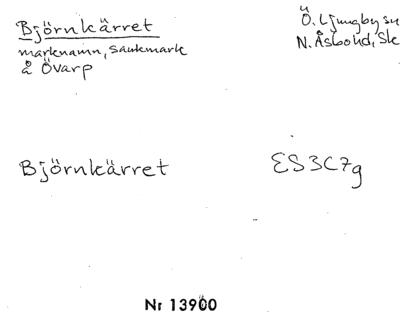 Björnkärret
Ö. Ljungby sn
marknamn, sankmark
N. Åsbohd, Sk
å Övarp
Björnkärret
ES3C7g
Nr 13900